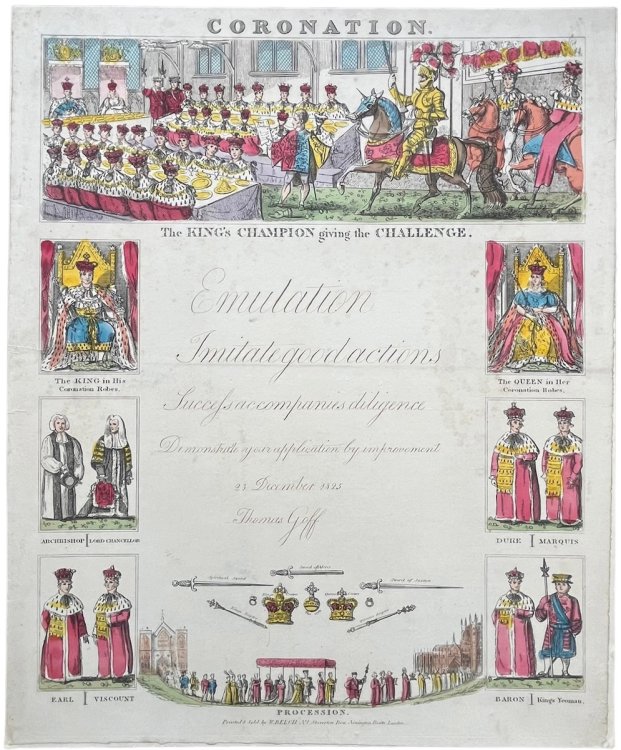 CORONATION.
The KING'S CHAMPION giving the CHALLENGE.
The KING in His
Coronation Robes.
The QUEEN in Her
Coronation Robes.
Emulation
Imitate good actions
Success accompanies diligence
Demonstrate your application by improvement
23 December 1825
Thomas Goff
ARCHBISHOP
LORD CHANCELLOR
DUKE
MARQUIS
Spiritual Sword
Sword of Mercy
EARL
VISCOUNT
BARON
Kings Yeoman.
PROCESSION.
Printed & Sold by W. BELCH
Newington Butts London